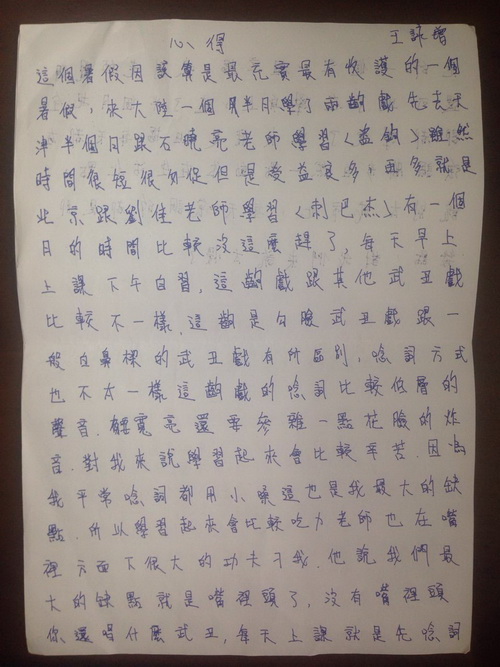 心得
王詠增
這個暑假因該算是最充實最有收護的一個
暑假,來大陸一個月半月學了兩齣戲先去天
津半個日跟不曉亮老師學習《盜鈎》雖然
時間很短很匆促但是受益良多,再多就是
北京跟劉佳老師學習《刺巴杰》有一個
月的時間比較沒這麼趕了,每天早上
上課下午自習,這齣戲跟其他武丑戲
比較不一樣,這齣是勾臉武丑戲跟一
般白鼻樑的武丑戲有所區別,唸詞方式
也不太一樣這齣戲的唸詞比較低層的
聲音,寬亮還要參雜一點花臉的炸
音,對我來說學習起來會比較辛苦,因為
我平常唸詞都用小嗓這也是我最大的缺
點,所以學習起來會比較吃力老師也在嘴
裡方面下很大的功夫,他說我們最
大的缺點就是嘴裡頭了,沒有嘴裡頭
你還唱什麼武丑,每天上課就是先唸詞